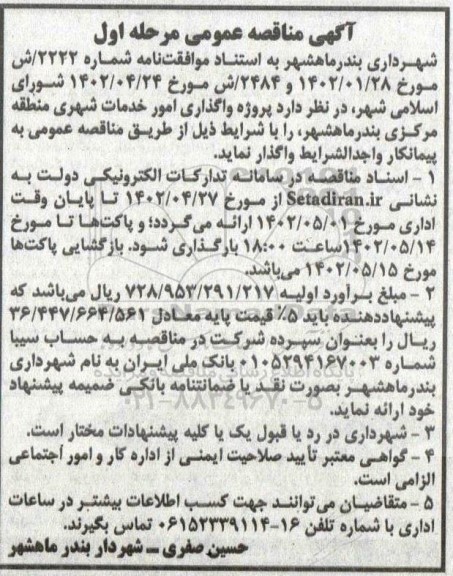 آگهی مناقصه عمومی مرحله اول
شهرداری بندرماهشهر به استناد موافقت‌نامه شماره ۲۲۲۲/ش
مورخ ۱۴۰۲/۰۱/۲۸ و ۲۴۸۴/ش مورخ ۱۴۰۲/۰۴/۲۴ شورای
اسلامی شهر، در نظر دارد پروژه واگذاری امور خدمات شهری منطقه
مرکزی بندرماهشهر، را با شرایط ذیل از طریق مناقصه عمومی به
پیمانکار واجدالشرایط واگذار نماید.
۱ - اسناد مناقصه در سامانه تدارکات الکترونیکی دولت به
نشانی Setadiran.ir از مورخ ۱۴۰۲/۰۴/۲۷ تا پایان وقت
اداری مورخ ۱۴۰۲/۰۵/۰۱ ارائه می‌گردد؛ و پاکت‌ها تا مورخ
۱۴۰۲/۰۵/۱۴ساعت ۱۸:۰۰ بارگذاری شود. بازگشایی پاکت‌ها
مورخ ۱۴۰۲/۰۵/۱۵ می‌باشند.
۲ - مبلغ برآورد اولیه ۷۲۸/۹۵۳/۲۹۱/۲۱۷ ریال می‌باشد که
پیشنهاددهنده باید ۵٪ قیمت پایه معادل ۳۶/۴۴۷/۶۶۴/۵۶۱
ریال را بعنوان سپرده شرکت در مناقصه به حساب سیبا
شماره ۰۱۰۵۲۹۴۱۶۷۰۰۳ بانک ملی ایران به نام شهرداری
بندرماهشهر بصورت نقد یا ضمانتنامه بانکی ضمیمه پیشنهاد
خود ارائه نماید.
۳ - شهرداری در رد یا قبول یک یا کلیه پیشنهادات مختار است.
۴ - گواهی معتبر تأیید صلاحیت ایمنی از اداره کار و امور اجتماعی
الزامی است.
۵ - متقاضیان می‌توانند جهت کسب اطلاعات بیشتر در ساعات
اداری با شماره تلفن ۱۶-۰۶۱۵۲۳۳۹۱۱۴ تماس بگیرند.
حسین صفری ــ شهردار بندر ماهشهر
۰۲۱-۸۸۳۴۹۶۷۰-۵